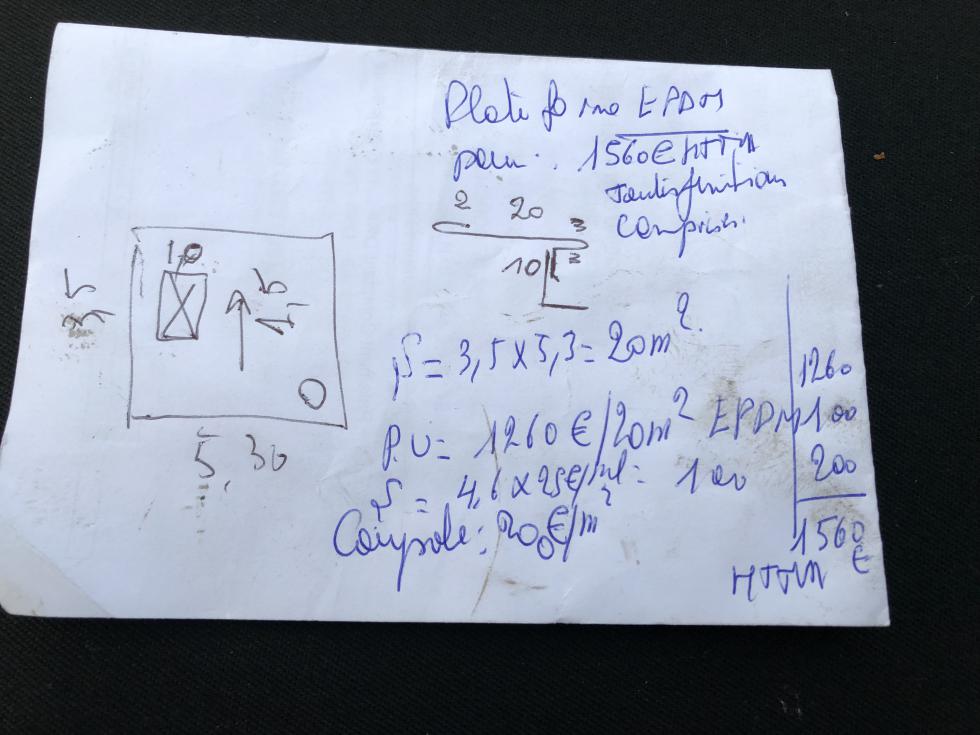 Plate forme EPDM
pour : 1560€ HTVA
Toutes finitions
comprises.
2 20 3
10 2
1.0
3,5
1,5
5,30
S = 3,5 x 5,3 = 20m2.
P.U = 1260 €/20m2 EPDM
S = 4,6 x 25€/ml = 100
Coupole : 200€/m2
1260
100
200
1560
€
HTVA